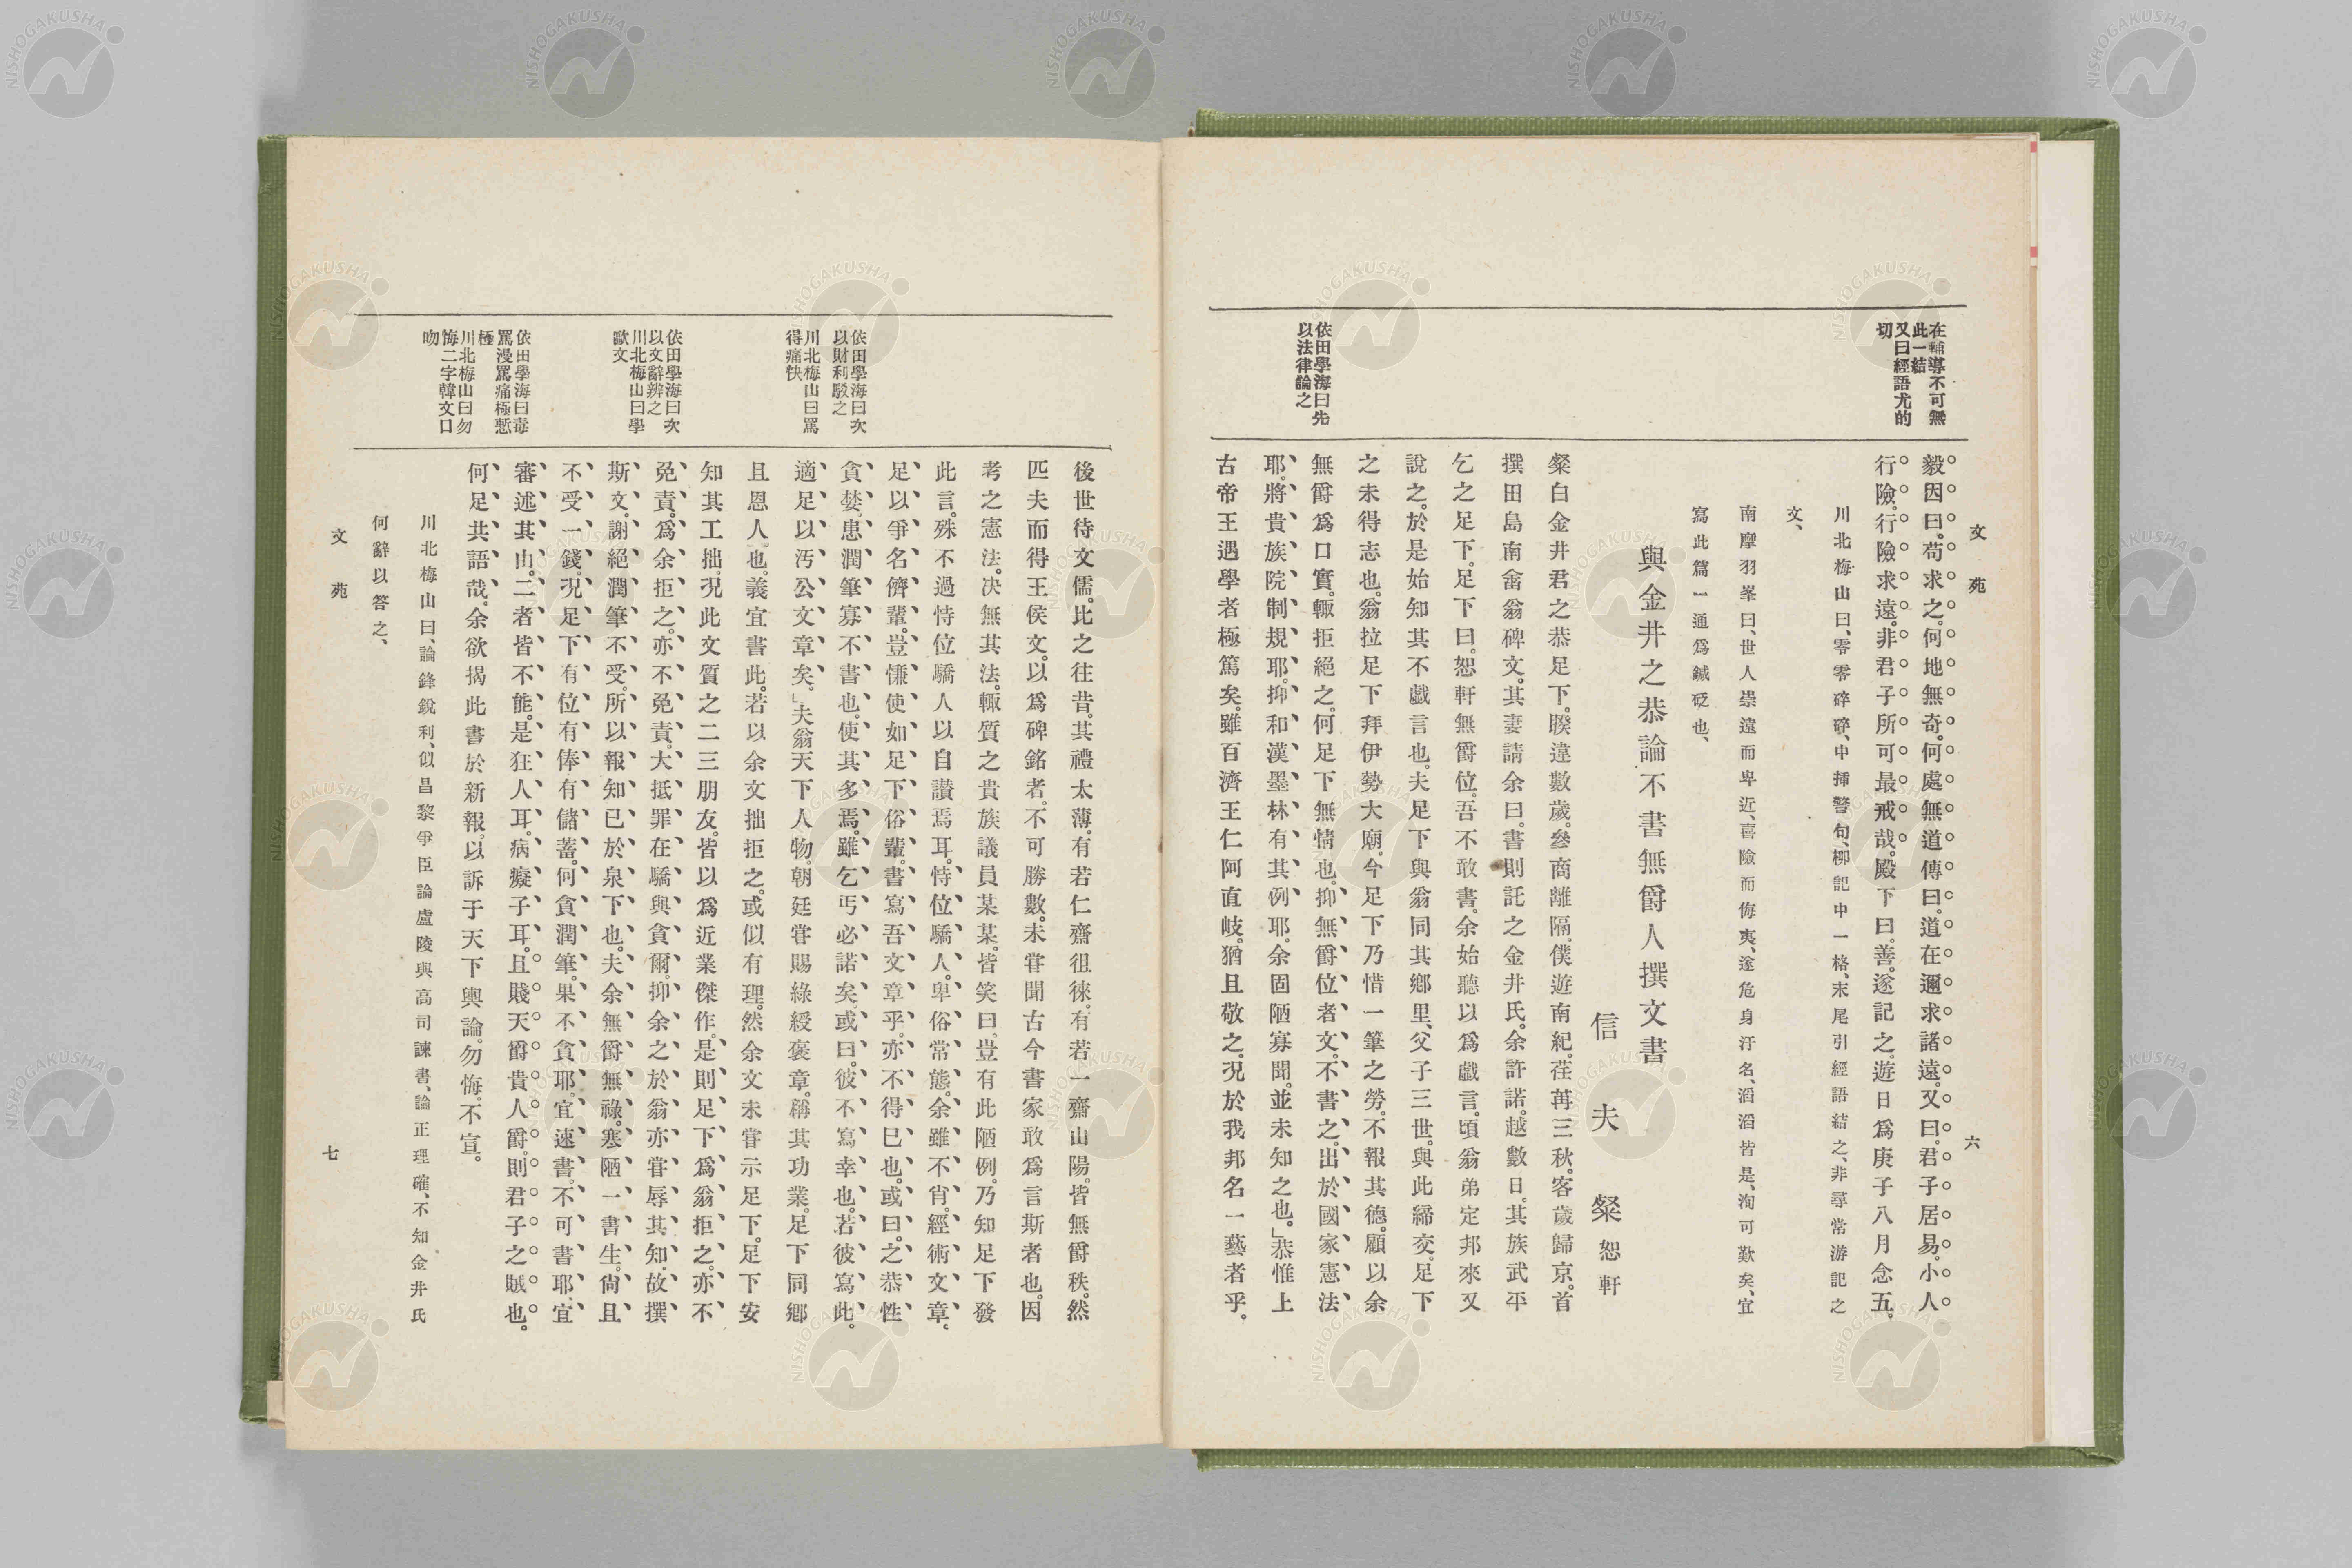 文苑
六
在輔導不可無
此一結
又曰經語尤的
切
依田學海曰先
以法律論之
毅因曰。苟求之。何地無奇。何處無道傳曰。道在邇求諸遠。又曰。君子居易。小人
行險。行險求遠。非君子所可最戒哉。殿下曰。善。遂記之。遊日爲庚子八月念五。
川北梅山曰、零零碎碎、中揷警句、柳記中一格、末尾引經語結之、非尋常游記之
文、
南摩羽峯曰、世人崇遠而卑近、喜險而侮夷、遂危身汙名、滔滔皆是、洵可歎矣、宜
寫此篇一通爲鍼砭也、
與金井之恭論不書無爵人撰文書
信夫 粲 恕軒
粲白金井君之恭足下。暌違數歲。參商離隔。僕遊南紀。荏苒三秋。客歲歸京。首
撰田島南畬翁碑文。其妻請余曰。書則託之金井氏。余許諾。越數日。其族武平
乞之足下。足下曰。恕軒無爵位。吾不敢書。余始聽以爲戲言。頃翁弟定邦來又
說之。於是始知其不戲言也。夫足下與翁同其鄉里、父子三世。與此締交。足下
之未得志也。翁拉足下拜伊勢大廟。今足下乃惜一筆之勞。不報其德。顧以余
無爵爲口實。輙拒絕之。何足下無情也。抑無爵位者文。不書之。出於國家憲法
耶。將貴族院制規耶。抑和漢墨林有其例耶。余固陋寡聞。並未知之也。」恭惟上
古帝王遇學者極篤矣。雖百濟王仁阿直岐。猶且敬之。況於我邦名一藝者乎。
依田學海曰次
以財利駁之
川北梅山曰罵
得痛快
依田學海曰次
以文辭辨之
川北梅山曰學
歐文
依田學海曰毒
罵漫罵痛極慙
極
川北梅山曰勿
悔二字韓文口
吻
後世待文儒。比之往昔。其禮太薄。有若仁齋徂徠。有若一齋山陽。皆無爵秩。然
匹夫而得王侯文。以爲碑銘者。不可勝數。未甞聞古今書家敢爲言斯者也。因
考之憲法。决無其法。輙質之貴族議員某某。皆笑曰。豈有此陋例。乃知足下發
此言。殊不過恃位驕人以自讚焉耳。恃位驕人。卑俗常態。余雖不肖。經術文章。
足以爭名儕輩。豈慊使如足下俗輩。書寫吾文章乎。亦不得巳也。或曰。之恭性
貪婪。患潤筆寡不書也。使其多焉。雖乞丐必諾矣。或曰。彼不寫幸也。若彼寫此。
適足以汚公文章矣。」夫翁天下人物。朝廷甞賜綠綬褒章。稱其功業。足下同鄉
且恩人也。義宜書此。若以余文拙拒之。或似有理。然余文未甞示足下。足下安
知其工拙。況此文質之二三朋友。皆以爲近業傑作。是則足下爲翁拒之。亦不
免責。爲余拒之。亦不免責。大抵罪在驕與貪爾。抑余之於翁亦甞辱其知。故撰
斯文。謝絕潤筆不受。所以報知已於泉下也。夫余無爵無祿。寒陋一書生。尙且
不受一錢。況足下有位有俸有儲蓄。何貪潤筆。果不貪耶。宜速書。不可書耶、宜
審述其由。二者皆不能。是狂人耳。病癡子耳。且賤天爵貴人爵。則君子之賊也。
何足共語哉。余欲揭此書於新報。以訴于天下輿論。勿悔。不宣。
川北梅山曰、論鋒銳利、似昌黎爭臣論盧陵與高司諫書、論正理確、不知金井氏
何辭以答之、
文苑
七